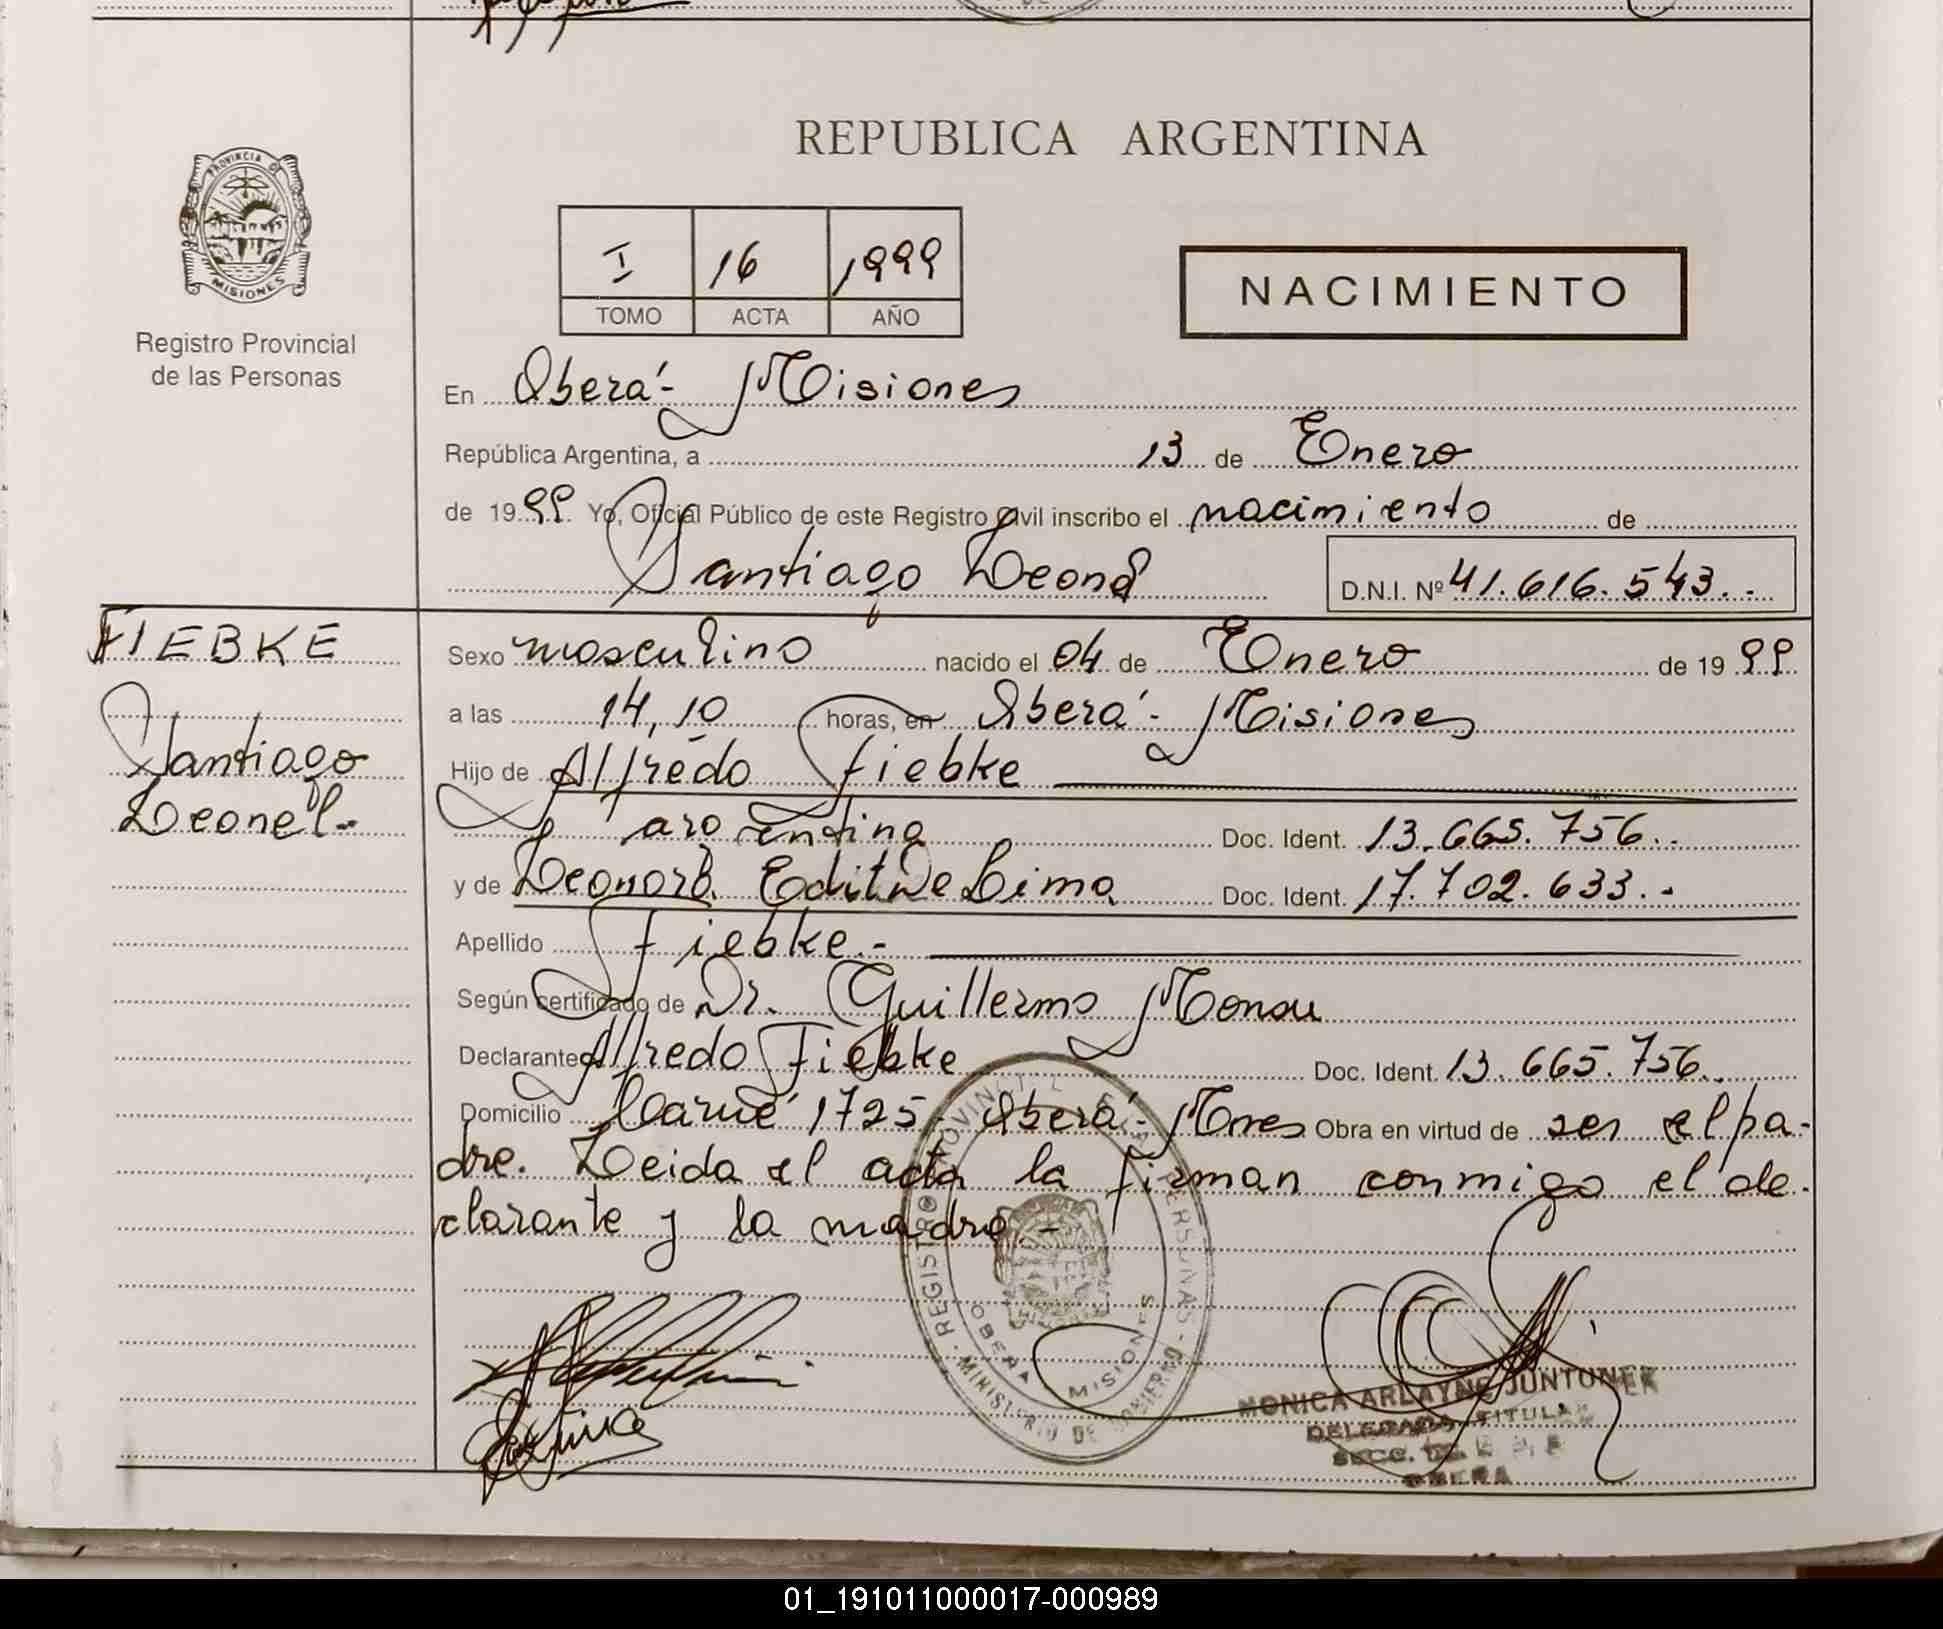 REPUBLICA ARGENTINA
PROVINCIA DE
MISIONES
Registro Provincial
de las Personas
I 16 1999
TOMO ACTA AÑO
NACIMIENTO
En Oberá - Misiones
República Argentina, a 13 de Enero
de 1999 Yo, Oficial Público de este Registro Civil inscribo el nacimiento de
Santiago Leonel
D.N.I. Nº 41.616.543.
FIEBKE
Santiago
Leonel.-
Sexo masculino nacido el 04 de Enero de 1999
a las 14,10 horas, en Oberá - Misiones
Hijo de Alfredo Fiebke
argentina Doc. Ident. 13.665.756.
y de Edit De Lima Doc. Ident. 17.702.633.-
Apellido Fiebke.-
Según certificado de Dr. Guillermo
Declarante Alfredo Fiebke Doc. Ident. 13.665.756.
Domicilio 1725, Oberá - Mnes Obra en virtud de ser el pa-
dre. Leida el acta la firman conmigo el de-
clarante y la madre.-
REGISTRO PROVINCIAL DE LAS PERSONAS - MINISTERIO DE GOBIERNO
OBERA MISIONES
MONICA ARLAYNE
DELEGADA TITULAR
SECC.
OBERA
01_191011000017-000989